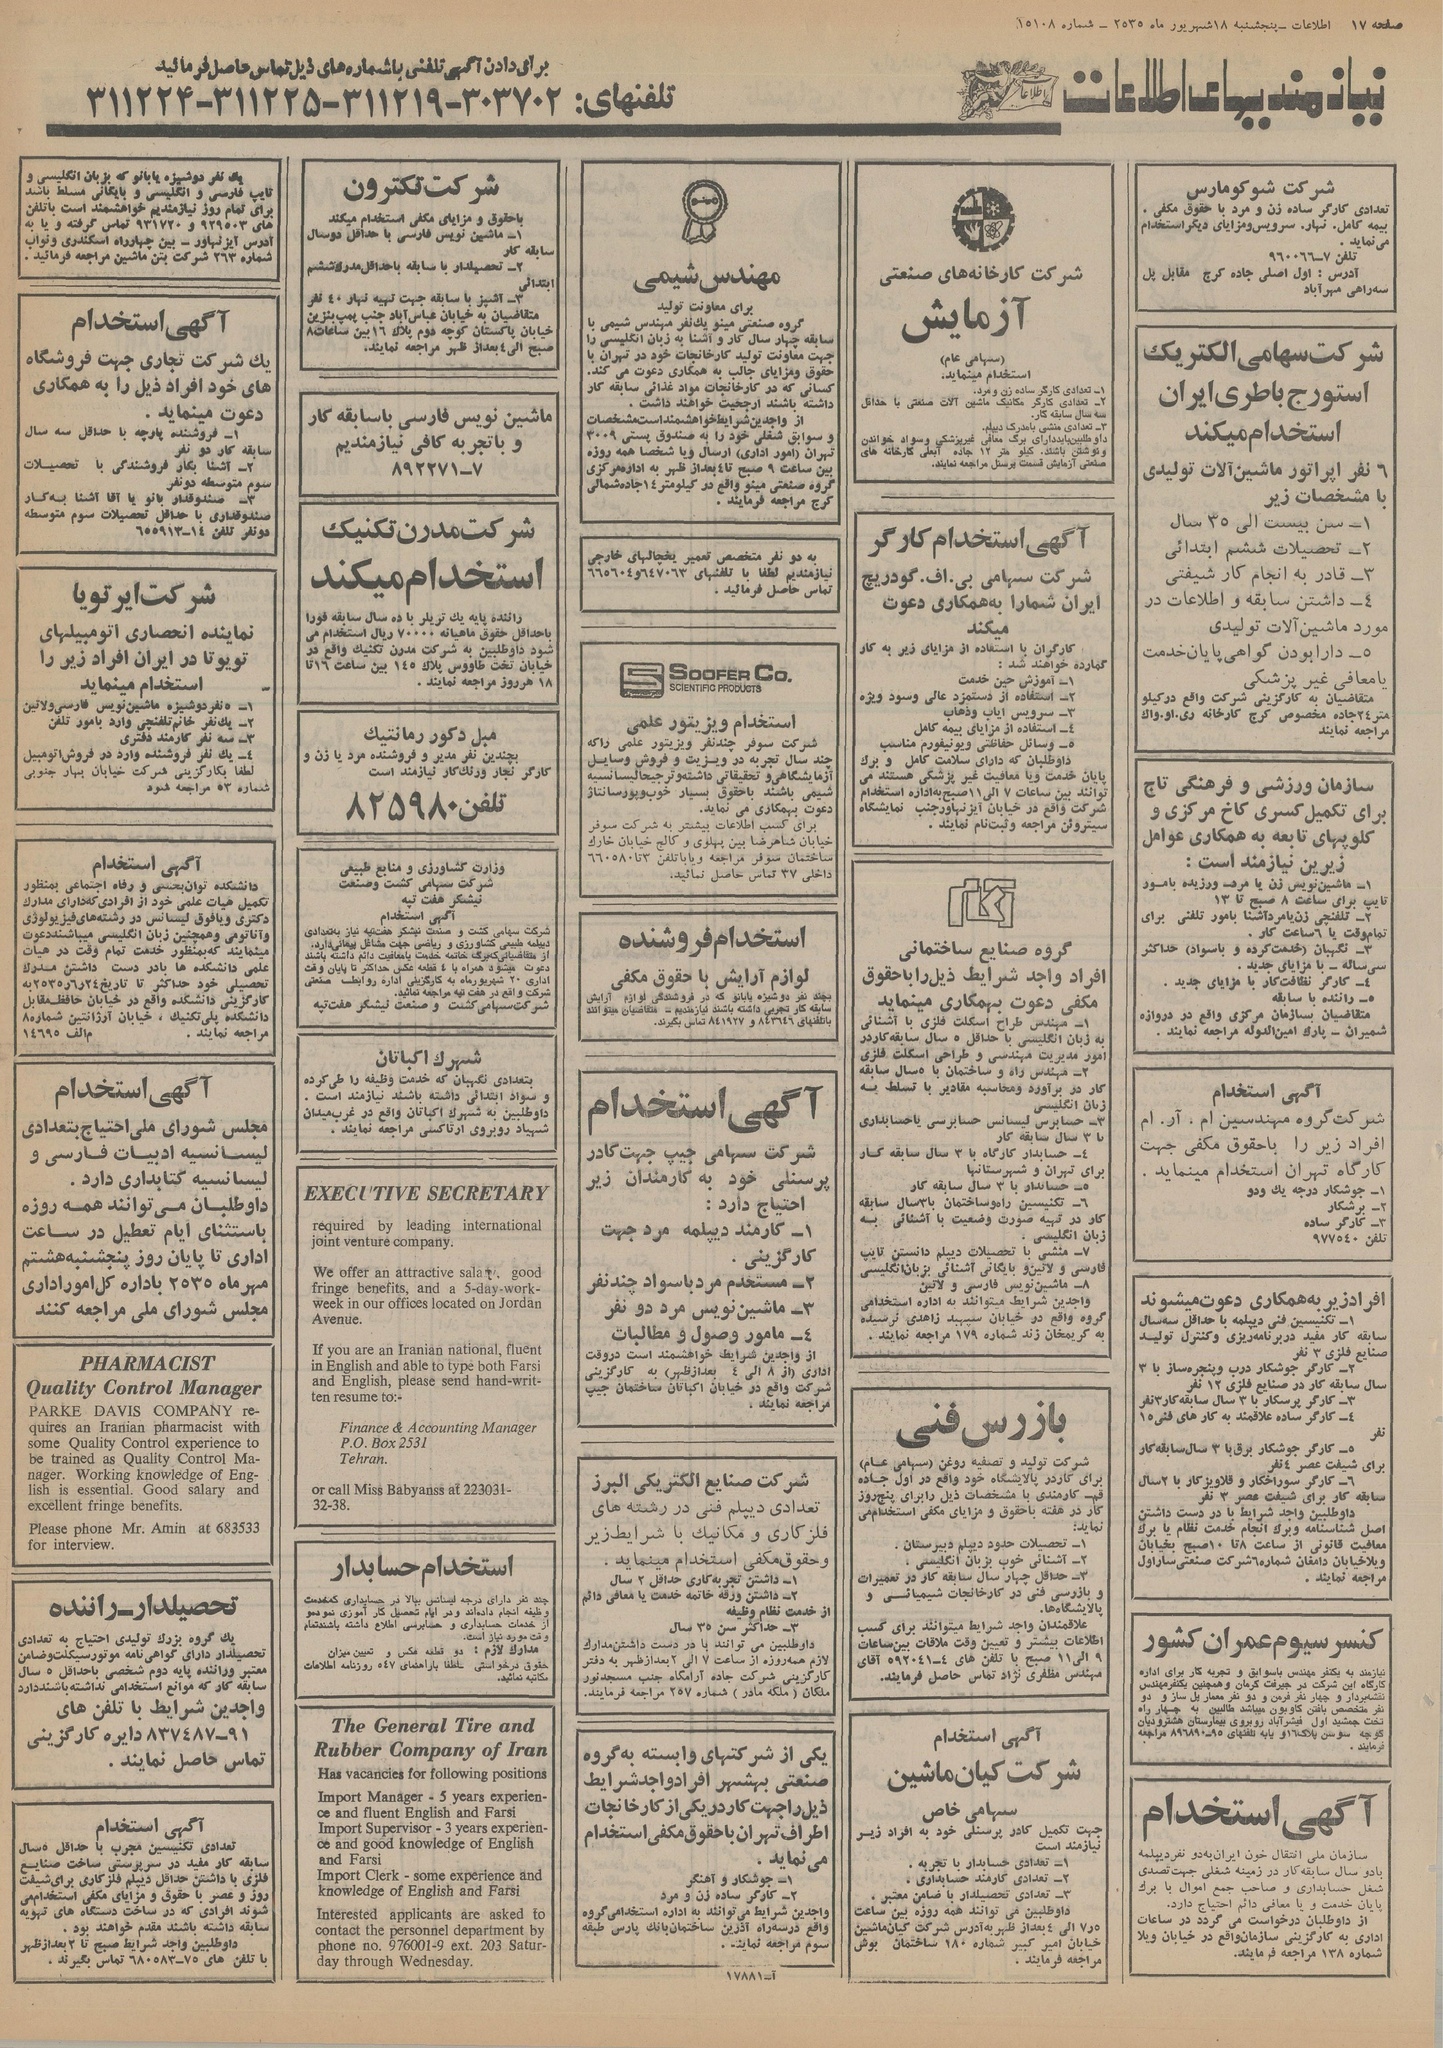 صفحه ۱۷ اطلاعات – پنجشنبه ۱۸ شهریور ماه ۲۵۳۵ – شماره ۱۵۱۰۸
نیازمندیهای اطلاعات
برای دادن آگهی تلفنی با شماره های ذیل تماس حاصل فرمائید
تلفنهای: ۳۰۳۷۰۲–۳۱۱۲۱۹–۳۱۱۲۲۵–۳۱۱۲۲۴
شرکت شوکومارس
تعدادی کارگر ساده زن و مرد با حقوق مکفی ،
بیمه کامل، نهار، سرویس ومزایای دیگر استخدام
می‌نماید .
تلفن ۷–۹۶۰۰۶۶
آدرس : اول اصلی جاده کرج مقابل پل
سه‌راهی مهرآباد
شرکت سهامی الکتریک
استورج باطری ایران
استخدام میکند
۶ نفر اپراتور ماشین‌آلات تولیدی
با مشخصات زیر
۱– سن بیست الی ۳۵ سال
۲– تحصیلات ششم ابتدائی
۳– قادر به انجام کار شیفتی
۴– داشتن سابقه و اطلاعات در
مورد ماشین‌آلات تولیدی
۵– دارابودن گواهی پایان‌خدمت
یامعافی غیر پزشکی
متقاضیان به کارگزینی شرکت واقع درکیلو
متر ۲۴ جاده مخصوص کرج کارخانه ری.او.واک
مراجعه نمایند
سازمان ورزشی و فرهنگی تاج
برای تکمیل کسری کاخ مرکزی و
کلوپهای تابعه به همکاری عوامل
زیرین نیازمند است :
۱– ماشین‌نویس زن یا مرد– ورزیده بامور
تایپ برای ساعت ۸ صبح تا ۱۳
۲– تلفنچی زن‌یامردآشنا بامور تلفنی برای
تمام‌وقت یا ۶ساعت کار .
۳– نگهبان (خدمت‌کرده و باسواد) حداکثر
سی‌ساله – با مزایای جدید .
۴– کارگر نظافت‌کار با مزایای جدید .
۵– راننده با سابقه
متقاضیان بسازمان مرکزی واقع در دروازه
شمیران – پارک امین‌الدوله مراجعه نمایند .
آگهی استخدام
شرکت‌گروه مهندسین ام . آر. ام
افراد زیر را باحقوق مکفی جهت
کارگاه تهران استخدام مینماید .
۱– جوشکار درجه یک ودو
۲– برشکار
۳– کارگر ساده
تلفن ۹۷۷۵۴۰
افراد زیر به همکاری دعوت میشوند
۱– تکنیسین فنی دیپلمه با حداقل سه‌سال
سابقه کار مفید دربرنامه‌ریزی وکنترل تولید
صنایع فلزی ۳ نفر
۲– کارگر جوشکار درب وپنجره‌ساز با ۳
سال سابقه کار در صنایع فلزی ۱۲ نفر
۳– کارگر پرسکار با ۳ سال سابقه کار ۳نفر
۴– کارگر ساده علاقمند به کار های فنی ۱۵
نفر
۵– کارگر جوشکار برق با ۳ سال سابقه کار
برای شیفت عصر ۴نفر
۶– کارگر سوراخکار و قلاویزکار با ۲سال
سابقه کار برای شیفت عصر ۳ نفر
داوطلبین واجد شرایط با در دست داشتن
اصل شناسنامه وبرگ انجام خدمت نظام یا برگ
معافیت قانونی از ساعت ۸تا ۱۰صبح بخیابان
ویلاخیابان دامغان شماره ۶ شرکت صنعتی ساراول
مراجعه نمایند .
کنسرسیوم عمران کشور
نیازمند به یکنفر مهندس باسوابق و تجربه کار برای اداره
کارگاه این شرکت در جیرفت کرمان و همچنین یکنفر مهندس
نقشه‌بردار و چهار نفر فرمن و دو نفر معمار پل ساز و دو
نفر متخصص بافتن گاوبون میباشد طالبین به چهار راه
تخت جمشید اول فیشرآباد روبروی بیمارستان هشترودیان
کوچه سوسن پلاک۱۶ و یابه تلفنهای ۹۵–۸۹۶۸۹۰ مراجعه
فرمایند .
آگهی استخدام
سازمان ملی انتقال خون ایران‌به‌دو نفردیپلمه
بادو سال سابقه‌کار در زمینه شغلی جهت‌تصدی
شغل حسابداری و صاحب جمع اموال با برگ
پایان خدمت و یا معافی دائم احتیاج دارد.
از داوطلبان درخواست می گردد در ساعات
اداری به کارگزینی سازمان‌واقع در خیابان ویلا
شماره ۱۳۸ مراجعه فرمایند.
شرکت کارخانه‌های صنعتی
آزمایش
(سهامی عام)
استخدام مینماید.
۱– تعدادی کارگر ساده زن ومرد.
۲– تعدادی کارگر مکانیک ماشین آلات صنعتی با حداقل
سه سال سابقه کار.
۳– تعدادی منشی بامدرک دیپلم.
داوطلبین‌بایددارای برگ معافی غیرپزشکی وسواد خواندن
و نوشتن باشند. کیلو متر ۱۲ جاده آبعلی کارخانه های
صنعتی آزمایش قسمت پرسنل مراجعه نمایند.
آگهی استخدام کارگر
شرکت سهامی بی.اف.گودریچ
ایران شمارا به‌همکاری دعوت
میکند
کارگران با استفاده از مزایای زیر به کار
گمارده خواهند شد :
۱– آموزش حین خدمت
۲– استفاده از دستمزد عالی وسود ویژه
۳– سرویس ایاب وذهاب
۴– استفاده از مزایای بیمه کامل
۵– وسائل حفاظتی ویونیفورم مناسب
داوطلبان که دارای سلامت کامل و برگ
پایان خدمت ویا معافیت غیر پزشکی هستند می
توانند بین ساعات ۷ الی۱۱صبح‌به‌اداره استخدام
شرکت واقع در خیابان آیزنهاورجنب نمایشگاه
سیتروئن مراجعه وثبت‌نام نمایند .
گروه صنایع ساختمانی
افراد واجد شرایط ذیل‌راباحقوق
مکفی دعوت بهمکاری مینماید
۱– مهندس طراح اسکلت فلزی با آشنائی
به زبان انگلیسی با حداقل ۵ سال سابقه‌کاردر
امور مدیریت مهندسی و طراحی اسکلت فلزی
۲– مهندس راه و ساختمان با ۵سال سابقه
کار در برآورد ومحاسبه مقادیر با تسلط به
زبان انگلیسی
۳– حسابرس لیسانس حسابرسی یاحسابداری
با ۳ سال سابقه کار
۴– حسابدار کارگاه با ۳ سال سابقه کار
برای تهران و شهرستانها
۵– حسابدار با ۳ سال سابقه کار
۶– تکنیسین راه‌وساختمان با۳سال سابقه
کار در تهیه صورت وضعیت با آشنائی به
زبان انگلیسی .
۷– منشی با تحصیلات دیپلم دانستن تایپ
فارسی و لاتین‌و بایگانی آشنائی بزبان‌انگلیسی
۸– ماشین‌نویس فارسی و لاتین
واجدین شرایط میتوانند به اداره استخدامی
گروه واقع در خیابان سپهبد زاهدی نرسیده
به کریمخان زند شماره ۱۷۹ مراجعه نمایند .
بازرس فنی
شرکت تولید و تصفیه روغن (سهامی عام)
برای کاردر پالایشگاه خود واقع در اول جاده
قم– کارمندی با مشخصات ذیل رابرای پنج‌روز
کار در هفته باحقوق و مزایای مکفی استخدام‌می
نماید:
۱– تحصیلات حدود دیپلم دبیرستان .
۲– آشنائی خوب بزبان انگلیسی .
۳– حداقل چهار سال سابقه کار در تعمیرات
و بازرسی فنی در کارخانجات شیمیائی و
پالایشگاه‌ها.
علاقمندان واجد شرایط میتوانند برای کسب
اطلاعات بیشتر و تعیین وقت ملاقات بین‌ساعات
۹ الی ۱۱ صبح با تلفن های ۴–۵۹۲۰۴۱ آقای
مهندس مظفری نژاد تماس حاصل فرمایند.
آگهی استخدام
شرکت کیان ماشین
سهامی خاص
جهت تکمیل کادر پرسنلی خود به افراد زیر
نیازمند است
۱– تعدادی حسابدار با تجربه .
۲– تعدادی کارمند حسابداری .
۳– تعدادی تحصیلدار با ضامن معتبر .
داوطلبین می توانند همه روزه بین ساعت
۵ر۷ الی ۴بعداز ظهر به‌آدرس شرکت کیان‌ماشین
خیابان امیر کبیر شماره ۱۸۰ ساختمان بوش
مراجعه فرمایند .
مینو
مهندس شیمی
برای معاونت تولید
گروه صنعتی مینو یک‌نفر مهندس شیمی با
سابقه چهار سال کار و آشنا به زبان انگلیسی را
جهت معاونت تولید کارخانجات خود در تهران با
حقوق ومزایای جالب به همکاری دعوت می کند.
کسانی که در کارخانجات مواد غذائی سابقه کار
داشته باشند ارجحیت خواهند داشت .
از واجدین‌شرایط‌خواهشمنداست‌مشخصات
و سوابق شغلی خود را به صندوق پستی ۳۰۰۹
تهران (امور اداری) ارسال ویا شخصا همه روزه
بین ساعت ۹ صبح تا۴بعداز ظهر به اداره‌مرکزی
گروه صنعتی مینو واقع در کیلومتر ۱۴جاده‌شمالی
کرج مراجعه فرمایند .
به دو نفر متخصص تعمیر یخچالهای خارجی
نیازمندیم لطفا با تلفنهای ۶۴۷۰۶۳و۶۶۵۶۰۴
تماس حاصل فرمائید .
SOOFER CO.
SCIENTIFIC PRODUCTS
استخدام ویزیتور علمی
شرکت سوفر چندنفر ویزیتور علمی راکه
چند سال تجربه در ویزیت و فروش وسایل
آزمایشگاهی‌و تحقیقاتی داشته‌وترجیحالیسانسیه
شیمی باشند باحقوق بسیار خوب‌وپورسانتاژ
دعوت بهمکاری می نماید.
برای کسب اطلاعات بیشتر به شرکت سوفر
خیابان شاهرضا بین پهلوی و کالج خیابان خارک
ساختمان سوفر مراجعه ویاباتلفن ۳تا۶۶۰۵۸۰
داخلی ۳۷ تماس حاصل نمائید.
استخدام فروشنده
لوازم آرایش با حقوق مکفی
بچند نفر دوشیزه یابانو که در فروشندگی لوازم آرایش
سابقه کار تجربی داشته باشند نیازمندیم – متقاضیان میتوانند
باتلفنهای ۸۴۳۶۴۶ و ۸۴۱۹۲۷ تماس بگیرند.
آگهی استخدام
شرکت سهامی جیپ جهت‌کادر
پرسنلی خود به کارمندان زیر
احتیاج دارد :
۱– کارمند دیپلمه مرد جهت
کارگزینی .
۲– مستخدم مردباسواد چندنفر
۳– ماشین‌نویس مرد دو نفر
۴– مامور وصول و مطالبات
از واجدین شرایط خواهشمند است دروقت
اداری (از ۸ الی ۴ بعدازظهر) به کارگزینی
شرکت واقع در خیابان اکباتان ساختمان جیپ
مراجعه نمایند .
شرکت صنایع الکتریکی البرز
تعدادی دیپلم فنی در رشته های
فلزکاری و مکانیک با شرایط‌زیر
وحقوق‌مکفی استخدام مینماید .
۱– داشتن تجربه‌کاری حداقل ۲ سال
۲– داشتن ورقه خاتمه خدمت یا معافی دائم
از خدمت نظام وظیفه
۳– حداکثر سن ۳۵ سال
داوطلبین می توانند با در دست داشتن‌مدارک
لازم همه‌روزه از ساعت ۷ الی ۲بعدازظهر به دفتر
کارگزینی شرکت جاده آرامگاه جنب مسجدنور
ملکان ( ملکه مادر ) شماره ۲۵۷ مراجعه فرمایند.
یکی از شرکتهای وابسته به‌گروه
صنعتی بهشهر افراد واجد شرایط
ذیل‌راجهت‌کاردریکی‌ازکارخانجات
اطراف‌تهران‌باحقوق‌مکفی‌استخدام
می‌نماید .
۱– جوشکار و آهنگر
۲– کارگر ساده زن و مرد
واجدین شرایط می‌توانند به اداره استخدامی‌گروه
واقع درسه‌راه آذرین ساختمان‌بانک پارس طبقه
سوم مراجعه نمایند.
آ–۱۷۸۸۱
شرکت تکترون
باحقوق و مزایای مکفی استخدام میکند
۱– ماشین نویس فارسی با حداقل دوسال
سابقه کار
۲– تحصیلدار با سابقه باحداقل‌مدرک‌ششم
ابتدائی
۳– آشپز با سابقه جهت تهیه نهار ۴۰ نفر
متقاضیان به خیابان عباس‌آباد جنب پمپ‌بنزین
خیابان پاکستان کوچه دوم پلاک ۱۶ بین ساعات۸
صبح الی۴بعداز ظهر مراجعه نمایند.
ماشین نویس فارسی باسابقه کار
و باتجربه کافی نیازمندیم
۷–۸۹۲۲۷۱
شرکت مدرن تکنیک
استخدام میکند
راننده پایه یک تریلر با ده سال سابقه فورا
باحداقل حقوق ماهیانه ۷۰۰۰۰ ریال استخدام می
شود داوطلبین به شرکت مدرن تکنیک واقع در
خیابان تخت طاووس پلاک ۱۴۵ بین ساعت ۱۶تا
۱۸ هرروز مراجعه نمایند .
مبل دکور رمانتیک
بچندین نفر مدیر و فروشنده مرد یا زن و
کارگر نجار ورنگ‌کار نیازمند است
تلفن ۸۲۵۹۸۰
وزارت کشاورزی و منابع طبیعی
شرکت سهامی کشت وصنعت
نیشکر هفت تپه
آگهی استخدام
شرکت سهامی کشت و صنعت نیشکر هفت‌تپه نیاز به‌تعدادی
دیپلمه طبیعی کشاورزی و ریاضی جهت مشاغل پیمانی‌دارد.
از متقاضیانی‌که‌برگ خاتمه خدمت یامعافیت دائم داشته باشند
دعوت میشود همراه با ۴ قطعه عکس حداکثر تا پایان وقت
اداری ۲۰ شهریورماه به کارگزینی اداره روابط صنعتی
شرکت واقع در هفت تپه مراجعه نمایند.
شرکت‌سهامی‌کشت و صنعت نیشکر هفت‌تپه
شهرک اکباتان
بتعدادی نگهبان که خدمت وظیفه را طی‌کرده
و سواد ابتدائی داشته باشند نیازمند است .
داوطلبین به شهرک اکباتان واقع در غرب‌میدان
شهیاد روبروی آرتاکسی مراجعه نمایند .
EXECUTIVE SECRETARY
required by leading international
joint venture company.
We offer an attractive salary, good
fringe benefits, and a 5-day-work-
week in our offices located on Jordan
Avenue.
If you are an Iranian national, fluent
in English and able to type both Farsi
and English, please send hand-writ-
ten resume to:-
Finance & Accounting Manager
P.O. Box 2531
Tehran.
or call Miss Babyanss at 223031-
32-38.
استخدام حسابدار
چند نفر دارای درجه لیسانس ببالا در حسابداری که‌خدمت
وظیفه انجام داده‌اند و در ایام تحصیل کار آموزی نموده‌و
از خدمات حسابداری و حسابرسی اطلاع داشته باشندتمام
وقت مورد نیاز است.
مدارک لازم : دو قطعه عکس و تعیین میزان
حقوق درخواستی – لطفا باراهنمای ۵۴۷ روزنامه اطلاعات
مکاتبه نمائید.
The General Tire and
Rubber Company of Iran
Has vacancies for following positions
Import Manager - 5 years experien-
ce and fluent English and Farsi
Import Supervisor - 3 years experien-
ce and good knowledge of English
and Farsi
Import Clerk - some experience and
knowledge of English and Farsi
Interested applicants are asked to
contact the personnel department by
phone no. 976001-9 ext. 203 Satur-
day through Wednesday.
یک نفر دوشیزه یابانو که بزبان انگلیسی و
تایپ فارسی و انگلیسی و بایگانی مسلط باشد
برای تمام روز نیازمندیم خواهشمند است باتلفن
های ۹۲۹۵۰۳ و ۹۳۱۷۲۰ تماس گرفته و یا به
آدرس آیزنهاور – بین چهارراه اسکندری ونواب
شماره ۲۶۳ شرکت بتن ماشین مراجعه فرمائید .
آگهی استخدام
یک شرکت تجاری جهت فروشگاه
های خود افراد ذیل را به همکاری
دعوت مینماید .
۱– فروشنده پارچه با حداقل سه سال
سابقه کار دو نفر
۲– آشنا بکار فروشندگی با تحصیلات
سوم متوسطه دونفر
۳– صندوقدار بانو یا آقا آشنا به‌کار
صندوقداری با حداقل تحصیلات سوم متوسطه
دونفر تلفن ۱۴–۶۵۵۹۱۳
شرکت ایرتویا
نماینده انحصاری اتومبیلهای
تویوتا در ایران افراد زیر را
استخدام مینماید
۱– ۵نفردوشیزه ماشین‌نویس فارسی‌ولاتین
۲– یک‌نفر خانم‌تلفنچی وارد بامور تلفن
۳– سه نفر کارمند دفتری
۴– یک نفر فروشنده وارد در فروش‌اتومبیل
لطفا بکارگزینی شرکت خیابان بهار جنوبی
شماره ۵۳ مراجعه شود
آگهی استخدام
دانشکده توان‌بخشی و رفاه اجتماعی بمنظور
تکمیل هیات علمی خود از افرادی‌که‌دارای مدارک
دکتری ویافوق لیسانس در رشته‌های‌فیزیولوژی
وآناتومی وهمچنین زبان انگلیسی میباشنددعوت
مینماید که‌بمنظور خدمت تمام وقت در هیات
علمی دانشکده ها بادر دست داشتن مدرک
تحصیلی خود حداکثر تا تاریخ۲۴ر۶ر۲۵۳۵به
کارگزینی دانشکده واقع در خیابان حافظ‌مقابل
دانشکده پلی‌تکنیک ، خیابان آرژانتین شماره۸
مراجعه نمایند . م‌الف ۱۴۶۹۵
آگهی استخدام
مجلس شورای ملی احتیاج بتعدادی
لیسانسیه ادبیات فارسی و
لیسانسیه کتابداری دارد .
داوطلبان می‌توانند همه روزه
باستثنای ایام تعطیل در ساعت
اداری تا پایان روز پنجشنبه‌هشتم
مهرماه ۲۵۳۵ باداره کل‌اموراداری
مجلس شورای ملی مراجعه کنند
PHARMACIST
Quality Control Manager
PARKE DAVIS COMPANY re-
quires an Iranian pharmacist with
some Quality Control experience to
be trained as Quality Control Ma-
nager. Working knowledge of Eng-
lish is essential. Good salary and
excellent fringe benefits.
Please phone Mr. Amin at 683533
for interview.
تحصیلدار–راننده
یک گروه بزرگ تولیدی احتیاج به تعدادی
تحصیلدار دارای گواهی نامه موتورسیکلت‌وضامن
معتبر وراننده پایه دوم شخصی باحداقل ۵ سال
سابقه کار که موانع استخدامی نداشته‌باشنددارد
واجدین شرایط با تلفن های
۹۱–۸۳۷۴۸۷ دایره کارگزینی
تماس حاصل نمایند .
آگهی استخدام
تعدادی تکنیسین مجرب با حداقل ۵سال
سابقه کار مفید در سرپرستی ساخت صنایع
فلزی با داشتن حداقل دیپلم فلزکاری برای‌شیفت
روز و عصر با حقوق و مزایای مکفی استخدام‌می
شوند افرادی که در ساخت دستگاه های تهویه
سابقه داشته باشند مقدم خواهند بود .
داوطلبین واجد شرایط صبح تا ۲بعدازظهر
با تلفن های ۷۵–۶۸۰۵۸۳ تماس بگیرند .